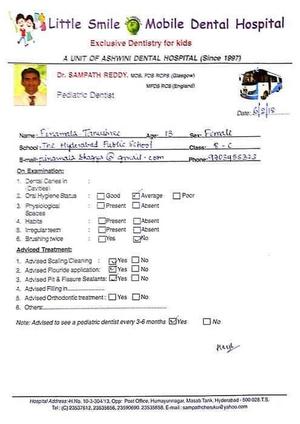 Little Smile Mobile Dental Hospital
Exclusive Dentistry for kids
A UNIT OF ASHWINI DENTAL HOSPITAL (Since 1997)
Dr. SAMPATH REDDY, MDS, FDS RCPS (Glasgow)
MFDS RCS (England)
Pediatric Dentist
Date: 6/2/18
Name: Age: 13 Sex: Female
School: The Hyderabad Public School Class: 8-C
E-mail: @gmail.com Phone:
On Examination:
1. Dental Caries in :
Cavities)
2. Oral Hygiene Status : Good Average Poor
3. Physiological : Present Absent
Spaces
4. Habits : Present Absent
5. Irregular teeth : Present Absent
6. Brushing twice : Yes No
Adviced Treatment:
1. Advised Scaling/Cleaning : Yes No
2. Advised Flouride application: Yes No
3. Advised Pit & Fissure Sealants: Yes No
4. Advised Filling in
5. Advised Orthodontic treatment : Yes No
6. Others:
Note: Advised to see a pediatric dentist every 3-6 months Yes No
Hospital Address: H.No. 10-3-304/13, Opp: Post Office, Humayunnagar, Masab Tank, Hyderabad - 500 028.T.S.
Tel: (C) 23537612, 23535656, 23590690, 23535858, E-mail: sampathcheruku@yahoo.com